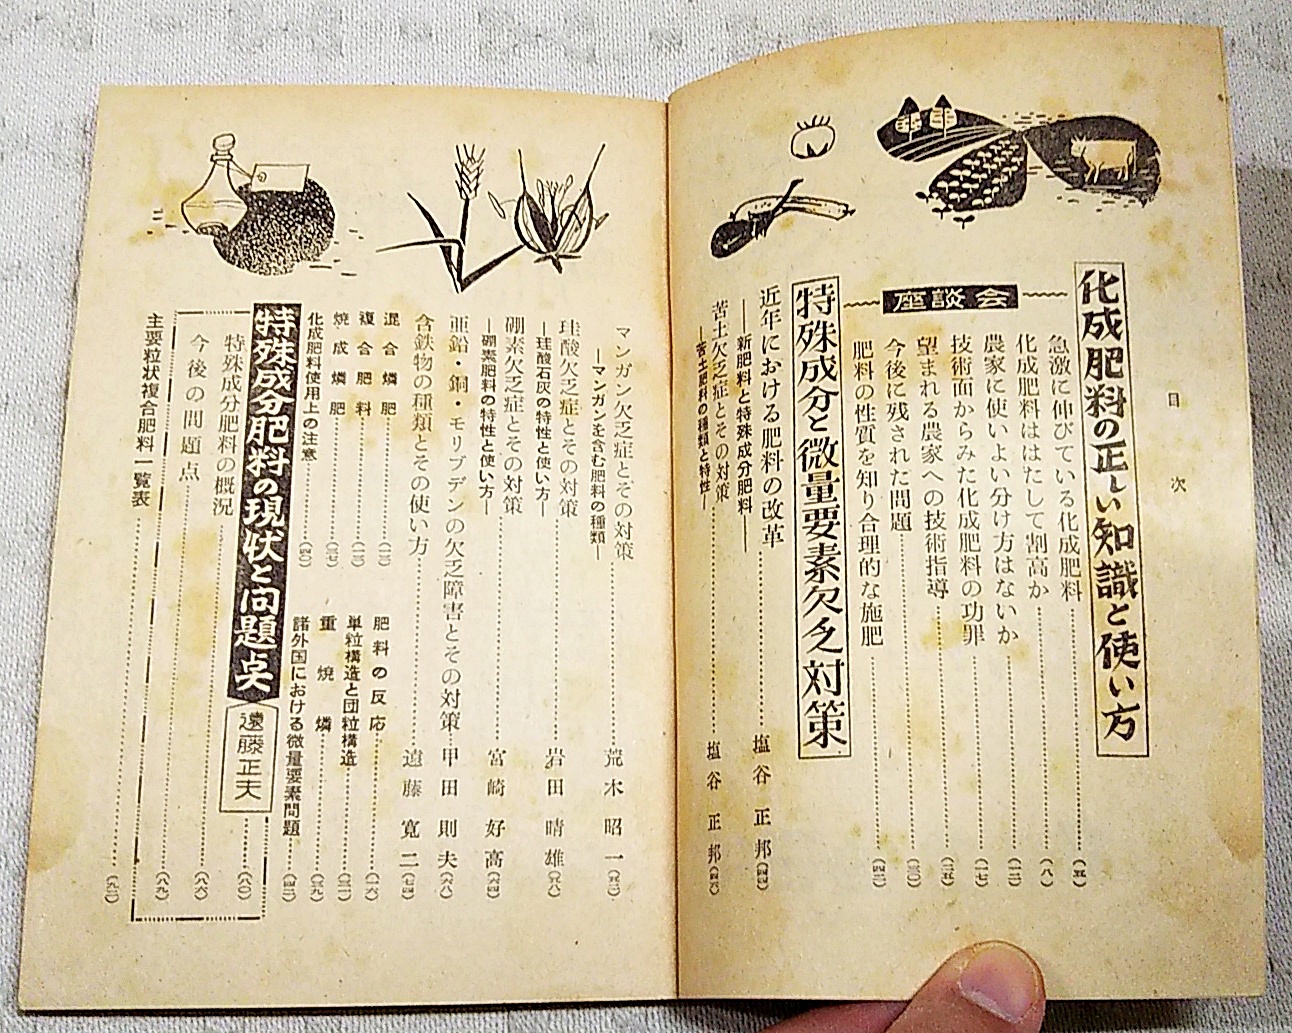 目次
化成肥料の正しい知識と使い方
座談会
急激に伸びている化成肥料……(五)
化成肥料ははたして割高か……(八)
農家に使いよい分け方はないか……(一二)
技術面からみた化成肥料の功罪……(一七)
望まれる農家への技術指導……(二五)
今後に残された問題……(三〇)
肥料の性質を知り合理的な施肥……(四二)
特殊成分と微量要素欠乏対策
近年における肥料の改革……塩谷正邦(四四)
―新肥料と特殊成分肥料―
苦土欠乏症とその対策……塩谷正邦(四六)
―苦土肥料の種類と特性―
マンガン欠乏症とその対策……荒木昭一(五二)
―マンガンを含む肥料の種類―
珪酸欠乏症とその対策……岩田晴雄(五八)
―珪酸石灰の特性と使い方―
硼素欠乏症とその対策……宮崎好高(六四)
―硼素肥料の特性と使い方―
亜鉛・銅・モリブデンの欠乏障害とその対策…甲田則夫(六八)
含鉄物の種類とその使い方……遠藤寛二(七四)
混合燐肥……(一三)
複合肥料……(一三)
焼成燐肥……(三七)
化成肥料使用上の注意……(四〇)
肥料の反応……(一六)
単粒構造と団粒構造……(三一)
重焼燐……(三九)
諸外国における微量要素問題……(四二)
特殊成分肥料の現状と問題点
遠藤正夫……(八〇)
特殊成分肥料の概況……(八六)
今後の問題点……(八九)
主要粒状複合肥料一覧表……(九二)